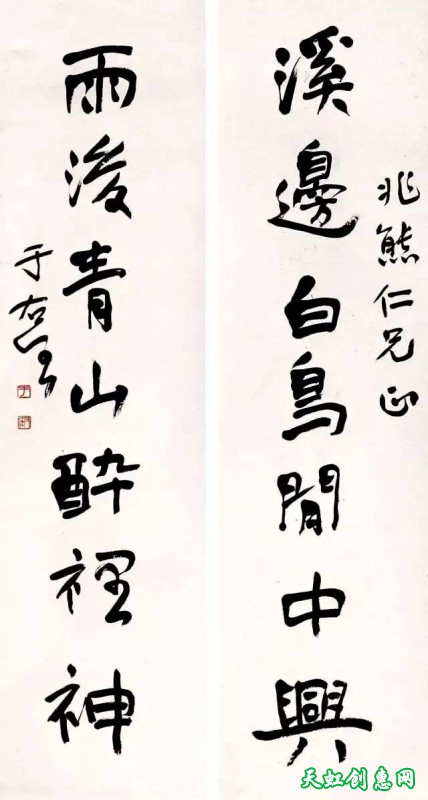 兆熊仁兄正
溪邊白鳥閒中興
雨後青山酔裡神
于右任
天虹创惠网